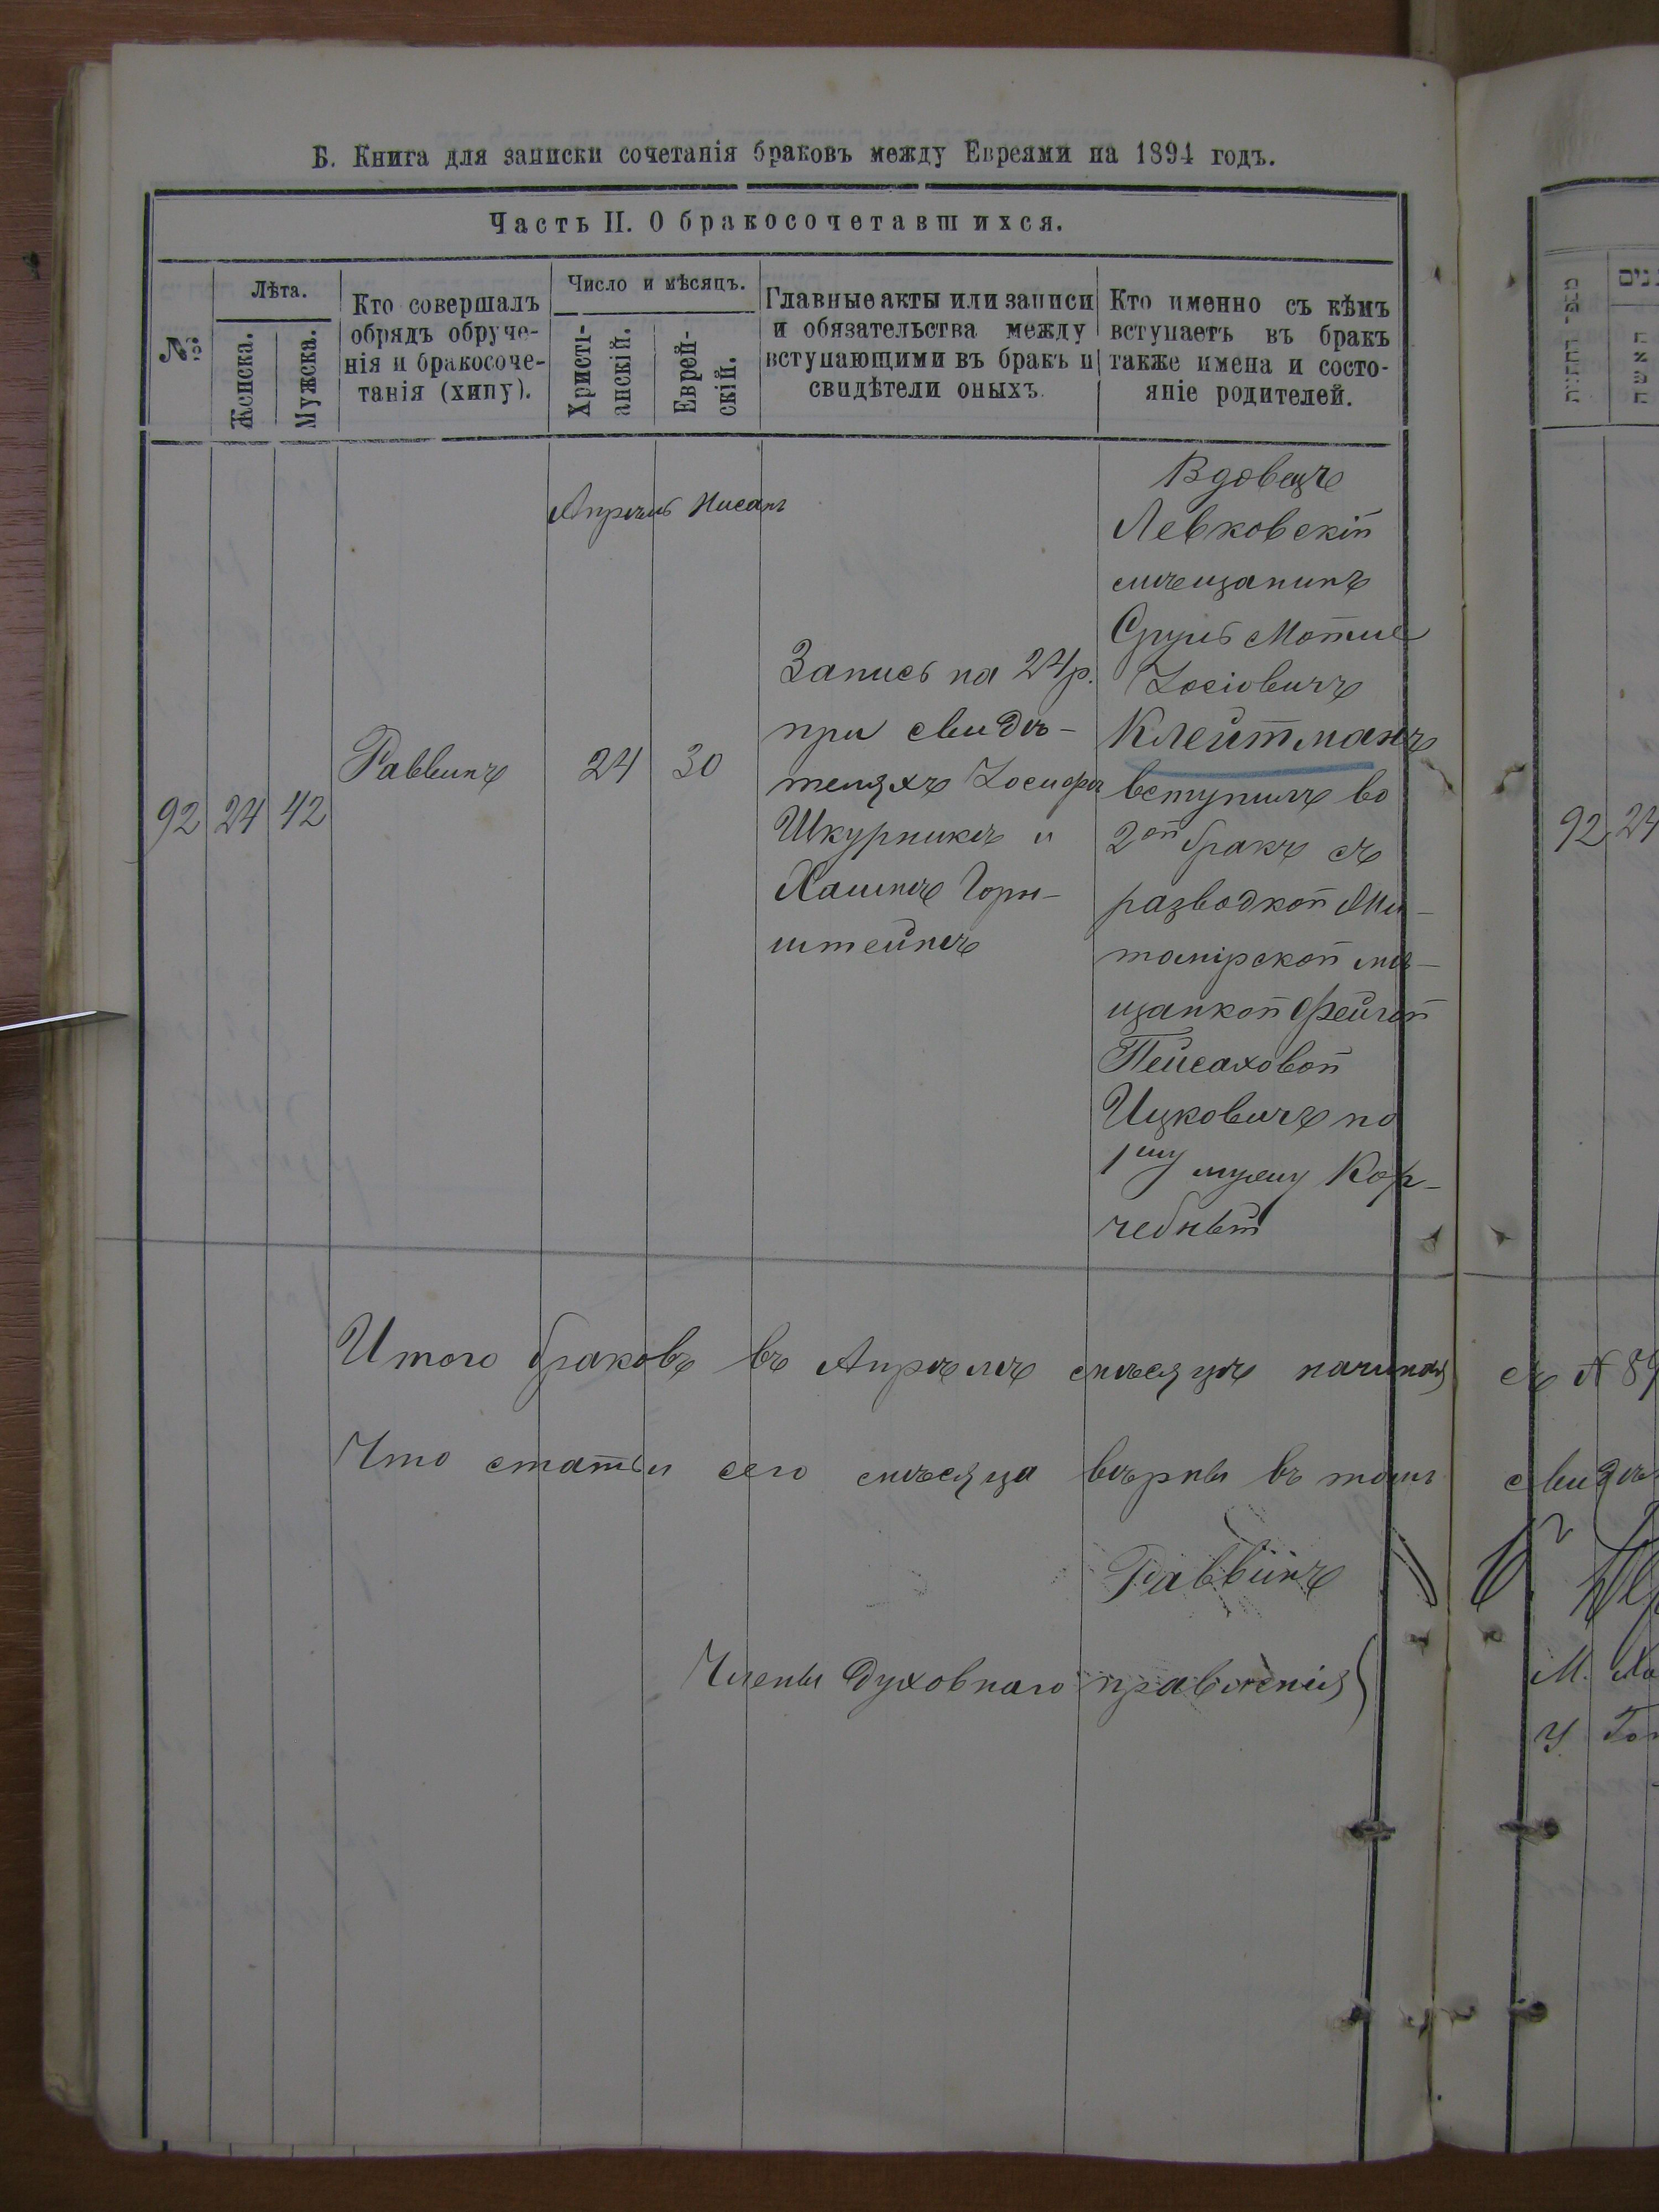 Б. Книга для записки сочетанія браковъ между Евреями на 1894 годъ.
Часть II. О бракосочетавшихся.
№
Лѣта.
Женска.
Мужска.
Кто совершалъ
обрядъ обруче-
нія и бракосоче-
танія (хипу).
Число и мѣсяцъ.
Христі-
анскій.
Еврей-
скій.
Главные акты или записи
и обязательства между
вступающими въ бракъ и
свидѣтели оныхъ.
Кто именно съ кѣмъ
вступаетъ въ бракъ
также имена и состо-
яніе родителей.
Апрѣль Нисанъ
92 24 42
Раввинъ
24 30
Запись на 24 р.
при свидѣ-
теляхъ Іосифѣ
Шкурникѣ и
Хаимѣ Горн-
штейнѣ
Вдовецъ
Левковскій
мѣщанинъ
Сруль Мотие
Іосіовичъ
Клейтманъ
вступилъ во
2ой бракъ съ
разводкой Жи-
томірской мѣ-
щанкой Фейгой
Пейсаховой
Ицковичъ по
1му мужу Кор-
чебный
Итого браковъ въ Апрѣлѣ мѣсяцѣ начиная съ № 89
Что статьи сего мѣсяца вѣрны въ томъ свидѣ
Раввинъ
Члены Духовнаго правленія
92 24